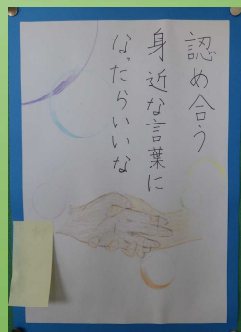 認め合う
身近な言葉に
なったらいいな